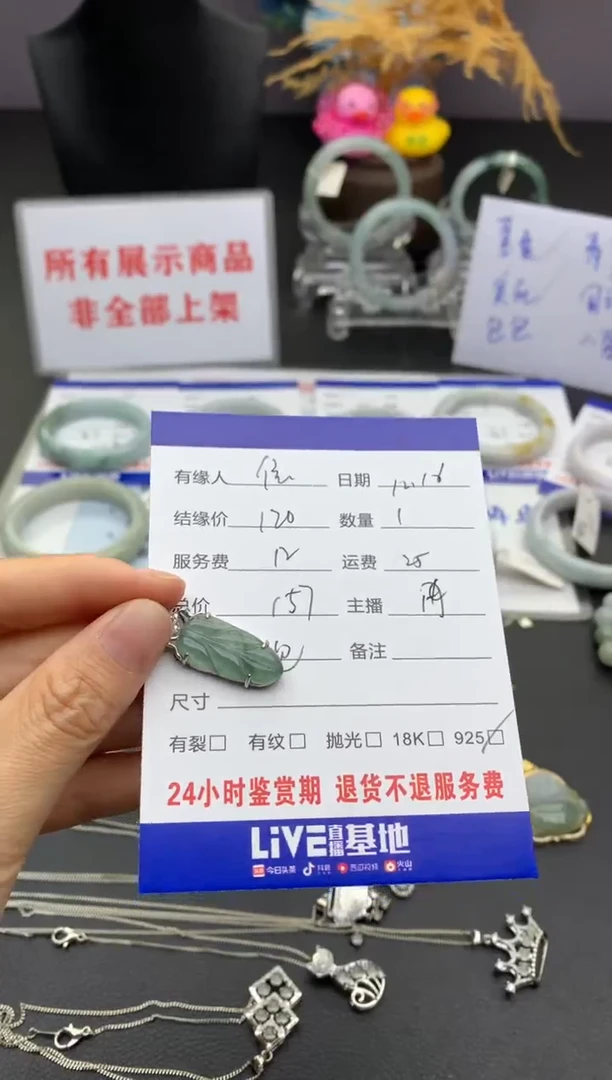 所有展示商品
非全部上架
有缘人 日期 12.16
结缘价 120 数量 1
服务费 12 运费 25
总价 157 主播
备注
尺寸
有裂□ 有纹□ 抛光□ 18K□ 925□
24小时鉴赏期 退货不退服务费
LiVE直播基地
今日头条 抖音 西瓜视频 火山